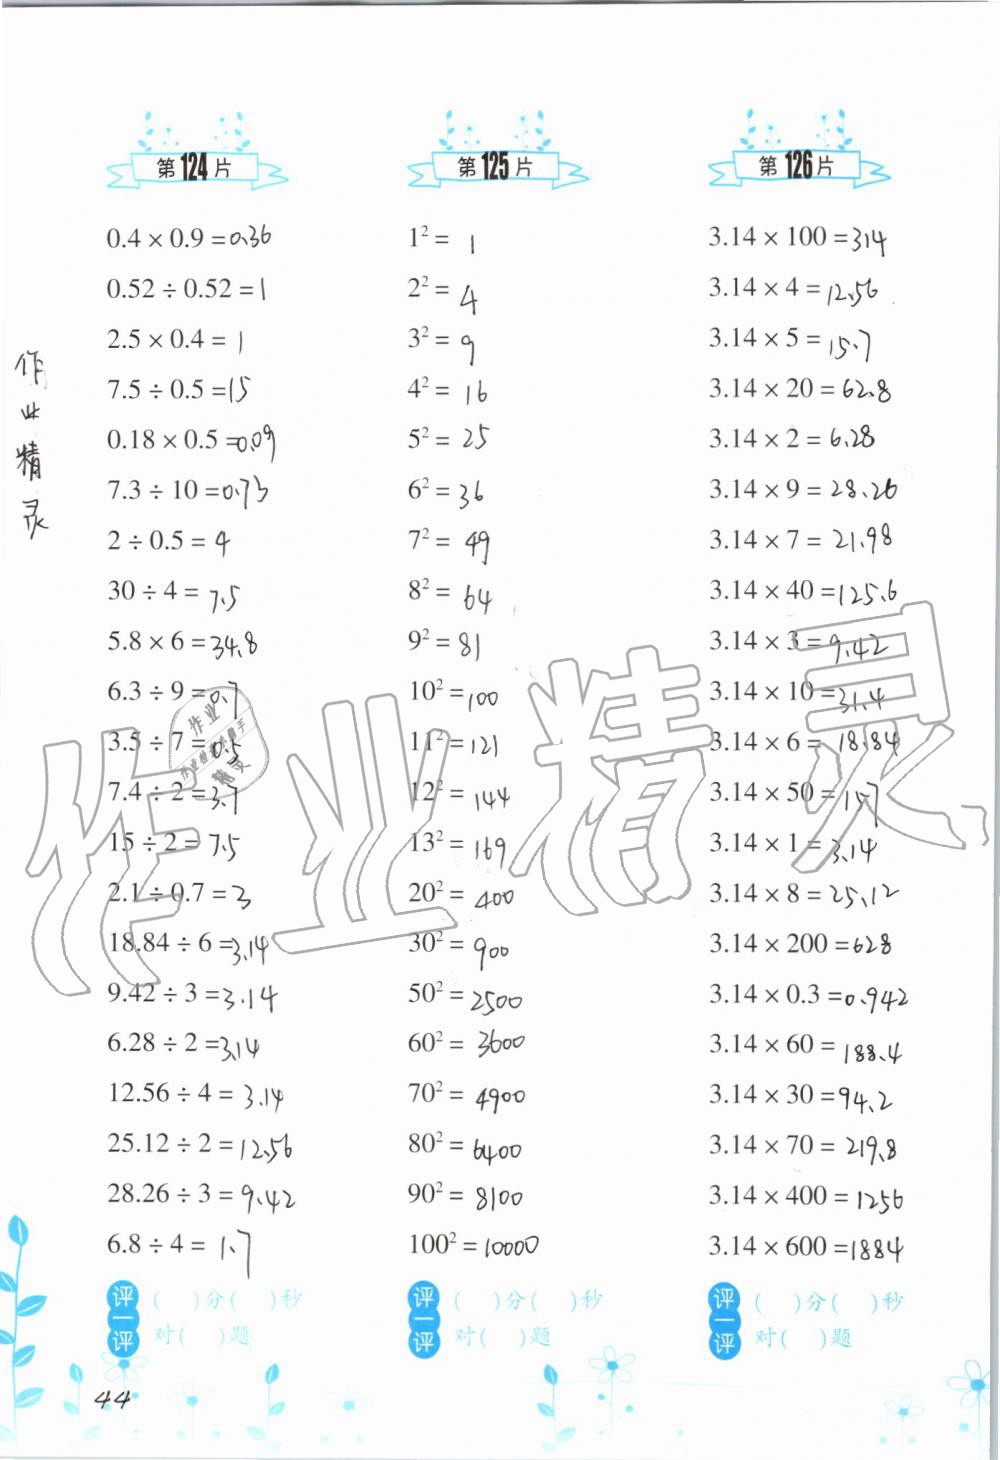 第124片
0.4 × 0.9 = 0.36
0.52 ÷ 0.52 = 1
2.5 × 0.4 = 1
7.5 ÷ 0.5 = 15
0.18 × 0.5 = 0.09
7.3 ÷ 10 = 0.73
2 ÷ 0.5 = 4
30 ÷ 4 = 7.5
5.8 × 6 = 34.8
6.3 ÷ 9 = 0.7
3.5 ÷ 7 = 0.5
7.4 ÷ 2 = 3.7
15 ÷ 2 = 7.5
2.1 ÷ 0.7 = 3
18.84 ÷ 6 = 3.14
9.42 ÷ 3 = 3.14
6.28 ÷ 2 = 3.14
12.56 ÷ 4 = 3.14
25.12 ÷ 2 = 12.56
28.26 ÷ 3 = 9.42
6.8 ÷ 4 = 1.7
评一评 ( )分( )秒
对( )题
第125片
1² = 1
2² = 4
3² = 9
4² = 16
5² = 25
6² = 36
7² = 49
8² = 64
9² = 81
10² = 100
11² = 121
12² = 144
13² = 169
20² = 400
30² = 900
50² = 2500
60² = 3600
70² = 4900
80² = 6400
90² = 8100
100² = 10000
评一评 ( )分( )秒
对( )题
第126片
3.14 × 100 = 314
3.14 × 4 = 12.56
3.14 × 5 = 15.7
3.14 × 20 = 62.8
3.14 × 2 = 6.28
3.14 × 9 = 28.26
3.14 × 7 = 21.98
3.14 × 40 = 125.6
3.14 × 3 = 9.42
3.14 × 10 = 31.4
3.14 × 6 = 18.84
3.14 × 50 = 157
3.14 × 1 = 3.14
3.14 × 8 = 25.12
3.14 × 200 = 628
3.14 × 0.3 = 0.942
3.14 × 60 = 188.4
3.14 × 30 = 94.2
3.14 × 70 = 219.8
3.14 × 400 = 1256
3.14 × 600 = 1884
评一评 ( )分( )秒
对( )题
作业精灵
作业精灵
44